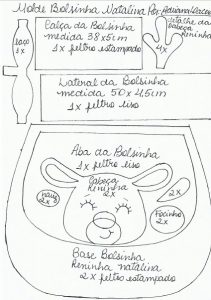 Molde Bolsinha Natalina Por: Adriana
detalhe da
cabeça
Reninha
4x
laço
1x
Calça da Bolsinha
medida 38x5cm
1x feltro estampado
Lateral da Bolsinha
medida 50x4,5cm
1x feltro liso
Aba da Bolsinha
1x feltro liso
Cabeça
Reninha
2x
2x
2x
Focinho
2x
Base Bolsinha
Reninha natalina
2x feltro estampado